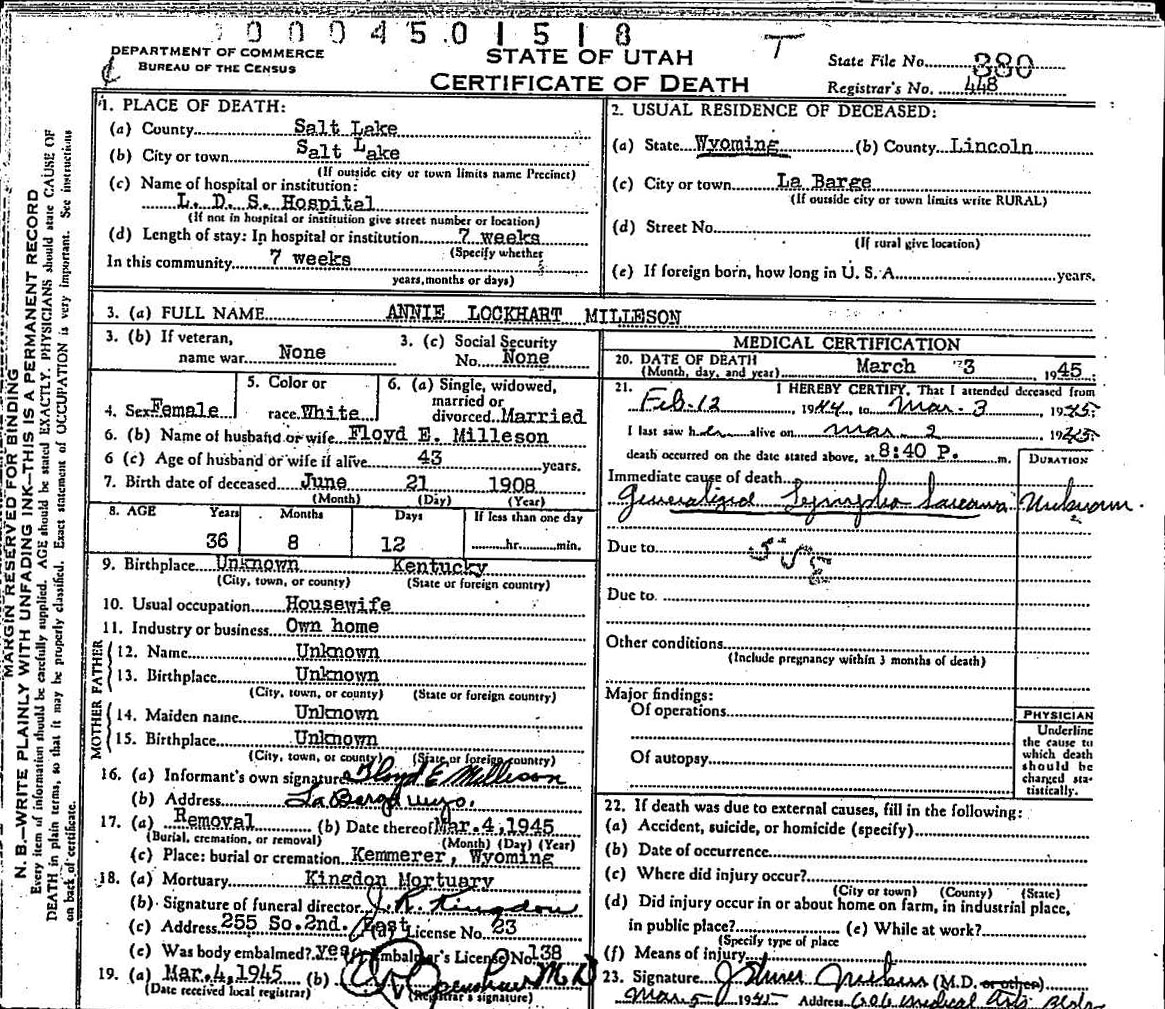 0004501518
DEPARTMENT OF COMMERCE
BUREAU OF THE CENSUS
STATE OF UTAH
CERTIFICATE OF DEATH
T
State File No. 380
Registrar's No. 448
MARGIN RESERVED FOR BINDING
N. B.—WRITE PLAINLY WITH UNFADING INK—THIS IS A PERMANENT RECORD
Every item of information should be carefully supplied. AGE should be stated EXACTLY. PHYSICIANS should state CAUSE OF
DEATH in plain terms, so that it may be properly classified. Exact statement of OCCUPATION is very important. See instructions
on back of certificate.
1. PLACE OF DEATH:
(a) County Salt Lake
(b) City or town Salt Lake
(If outside city or town limits name Precinct)
(c) Name of hospital or institution:
L. D. S. Hospital
(If not in hospital or institution give street number or location)
(d) Length of stay: In hospital or institution 7 weeks
(Specify whether
In this community 7 weeks
years, months or days)
2. USUAL RESIDENCE OF DECEASED:
(a) State Wyoming (b) County Lincoln
(c) City or town La Barge
(If outside city or town limits write RURAL)
(d) Street No.
(If rural give location)
(e) If foreign born, how long in U. S. A. years.
3. (a) FULL NAME ANNIE LOCKHART MILLESON
3. (b) If veteran,
name war None
3. (c) Social Security
No. None
4. Sex Female
5. Color or
race White
6. (a) Single, widowed,
married or
divorced Married
6. (b) Name of husband or wife Floyd E. Milleson
6 (c) Age of husband or wife if alive 43 years.
7. Birth date of deceased June 21 1908
(Month) (Day) (Year)
8. AGE Years Months Days If less than one day
36 8 12 hr. min.
9. Birthplace Unknown Kentucky
(City, town, or county) (State or foreign country)
10. Usual occupation Housewife
11. Industry or business Own home
FATHER
12. Name Unknown
13. Birthplace Unknown
(City, town, or county) (State or foreign country)
MOTHER
14. Maiden name Unknown
15. Birthplace Unknown
(City, town, or county) (State or foreign country)
16. (a) Informant's own signature Floyd E Milleson
(b) Address La Barge Wyo.
17. (a) Removal (b) Date thereof Mar. 4, 1945
(Burial, cremation, or removal) (Month) (Day) (Year)
(c) Place: burial or cremation Kemmerer, Wyoming
18. (a) Mortuary Kingdon Mortuary
(b) Signature of funeral director J. R. Kingdon
(c) Address 255 So. 2nd. East (d) License No. 23
(e) Was body embalmed? yes (f) Embalmer's License No. 138
19. (a) Mar. 4, 1945 (b) Openshaw M D
(Date received local registrar) (Registrar's signature)
MEDICAL CERTIFICATION
20. DATE OF DEATH
(Month, day, and year) March 3 1945
21. I HEREBY CERTIFY, That I attended deceased from
Feb-12 1944, to Mar. 3 1945
I last saw her alive on Mar. 2 1945
death occurred on the date stated above, at 8:40 P. m.
DURATION
Immediate cause of death
Generalized Lympho Sarcoma Unknown.
Due to
Due to
Other conditions
(Include pregnancy within 3 months of death)
Major findings:
Of operations
Of autopsy
PHYSICIAN
Underline
the cause to
which death
should be
charged sta-
tistically.
22. If death was due to external causes, fill in the following:
(a) Accident, suicide, or homicide (specify)
(b) Date of occurrence
(c) Where did injury occur?
(City or town) (County) (State)
(d) Did injury occur in or about home on farm, in industrial place,
in public place? (e) While at work?
(Specify type of place
(f) Means of injury
23. Signature (M.D. or other)
Mar 5 1945 Address Medical Arts Bldg